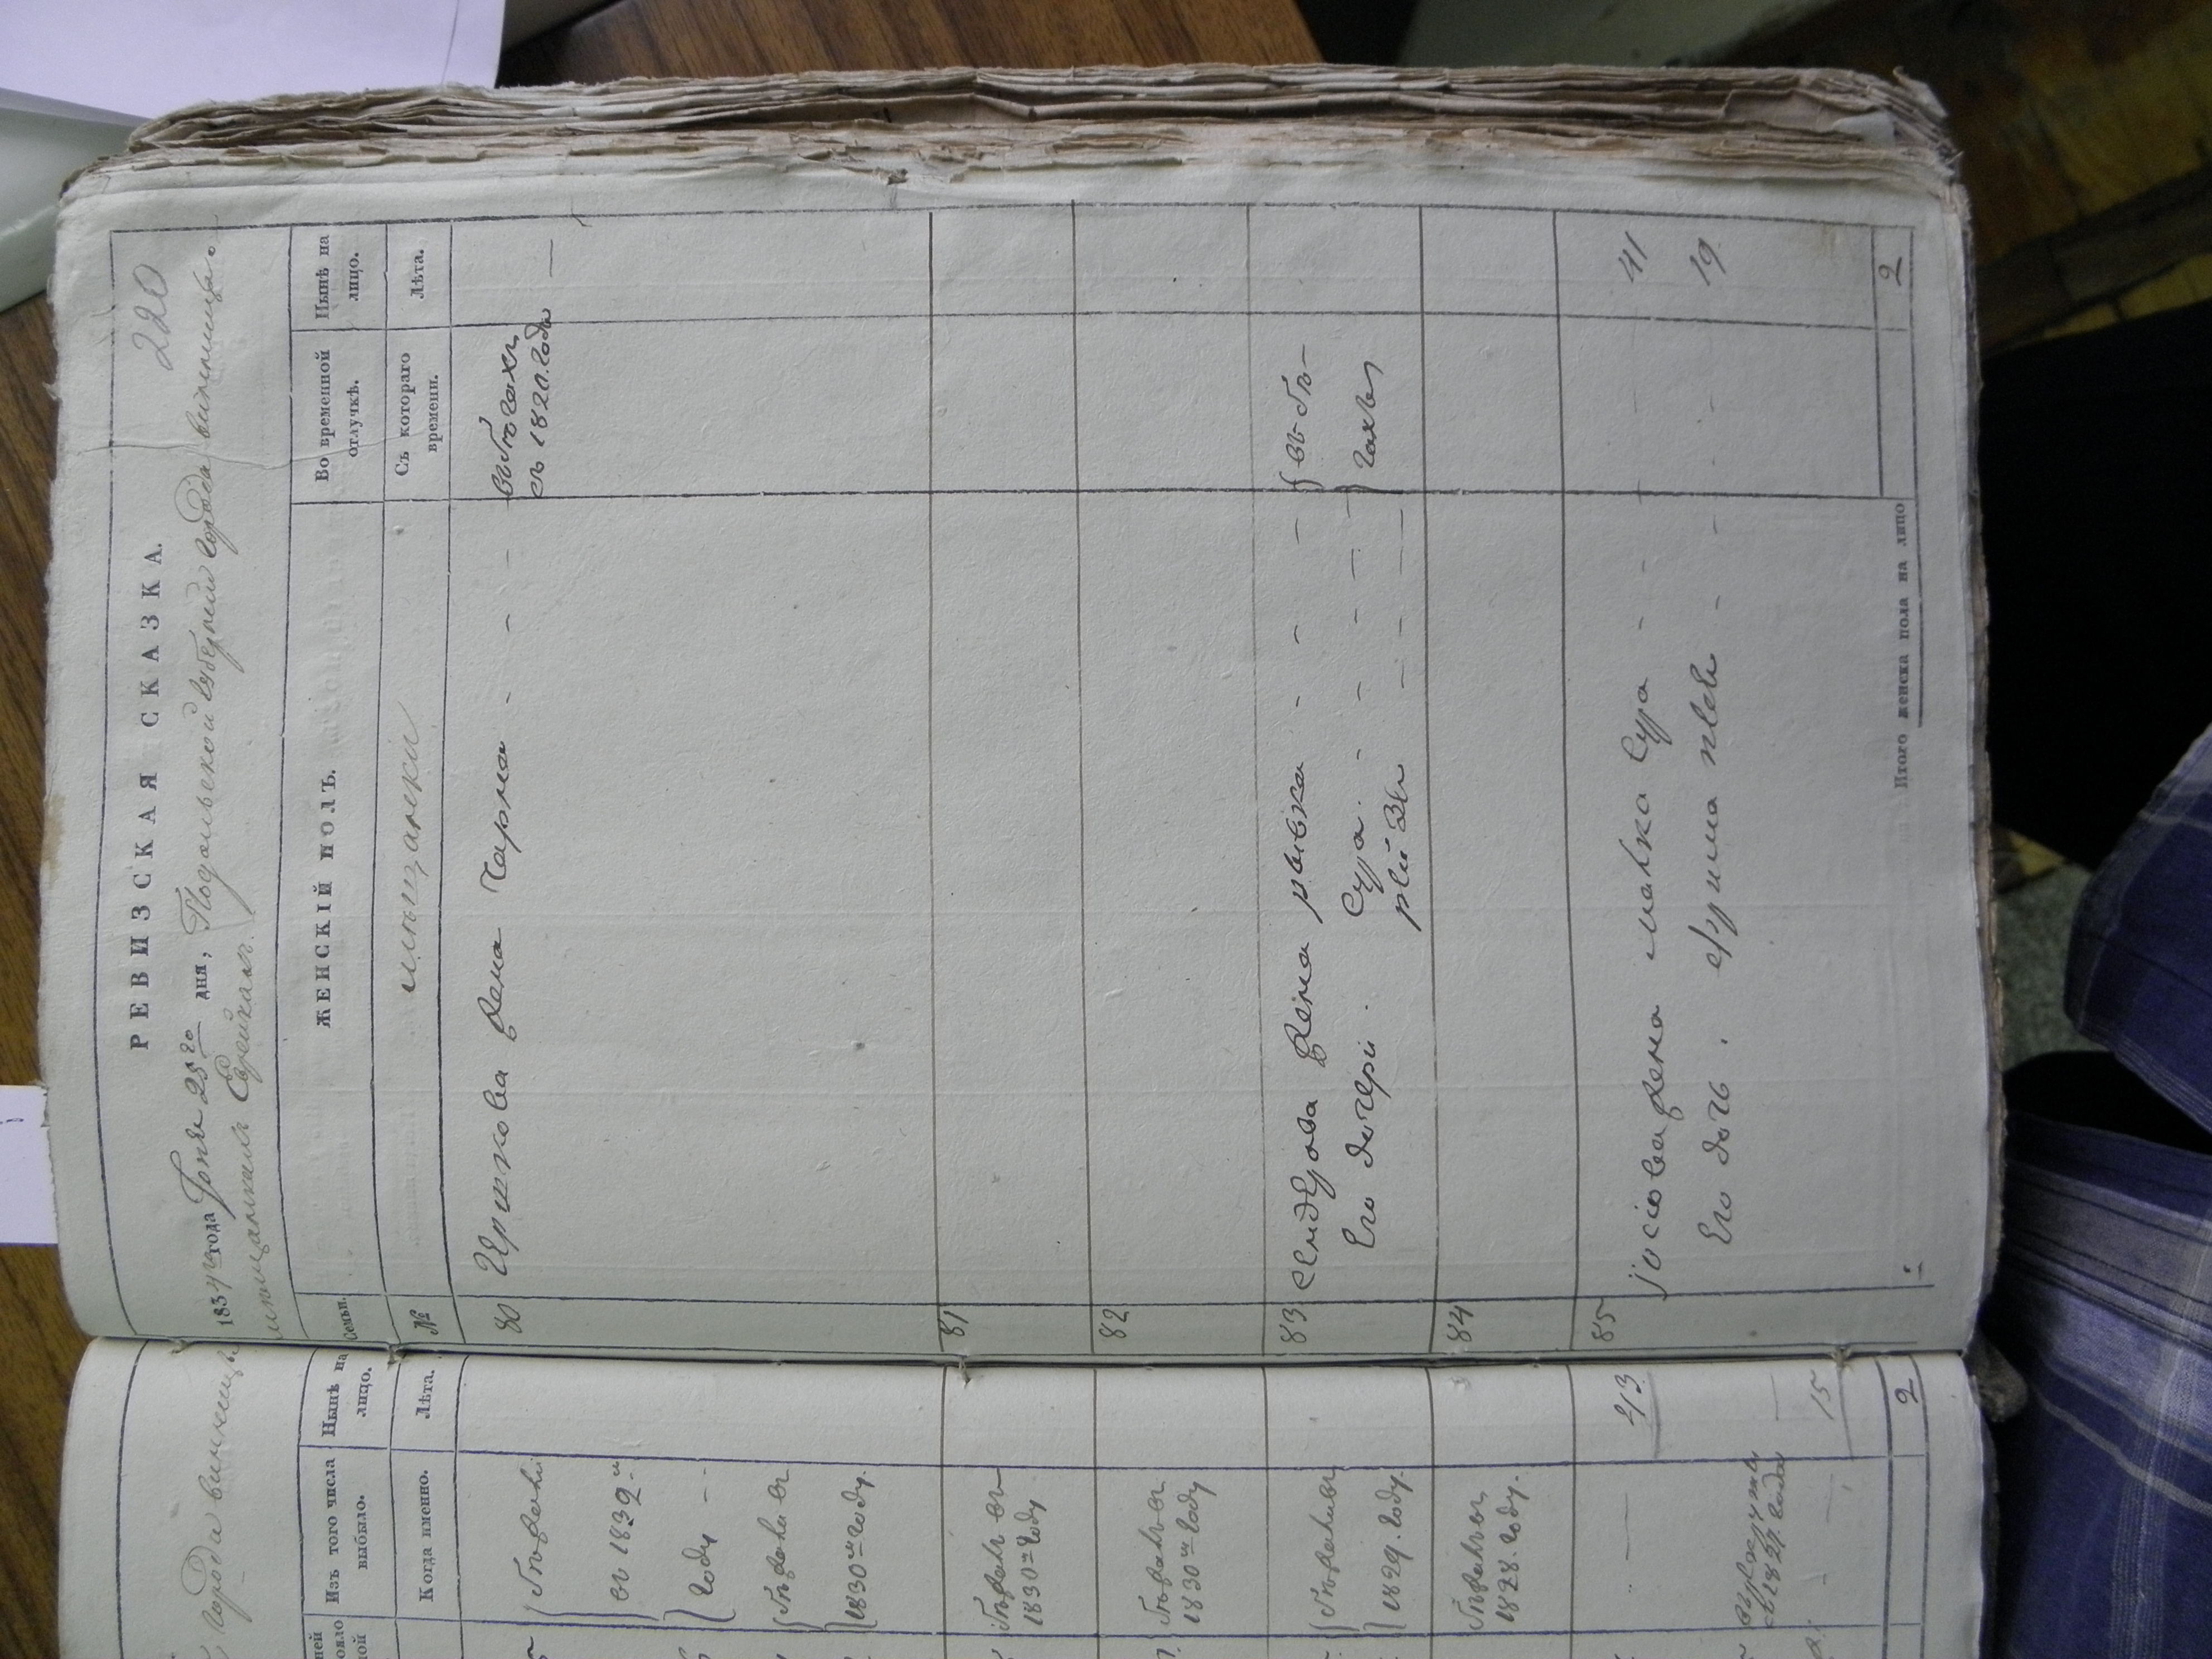 220
РЕВИЗСКАЯ СКАЗКА.
1834 года Іюня 25го дня, Подольской губерніи города винницы о
мѣщанахъ Евреяхъ.
Семьи. ЖЕНСКІЙ ПОЛЪ. Во временной отлучкѣ. Нынѣ на лицо.
№ мѣщанки Съ котораго времени. Лѣта.
80 Гершкова жена Чарна - - - въ бѣгахъ —
съ 1820. года
81
82
83 жена ривка - - - въ бѣ-
Его дочери. Сура. - - - - гахъ
84
85 Іосіова жена малка Сура - - - 41
Его дочь. - - - 19
Итого женска пола на лицо 2
города винницы
Изъ того числа выбыло. Нынѣ на лицо.
Когда именно. Лѣта.
бѣжали
въ 1832м
году —
бѣжали въ
1830м году.
бѣжалъ въ
1830м году
бѣжалъ въ
1830м году
бѣжали въ
1829. году.
бѣжалъ въ
1828. году.
43
15
2